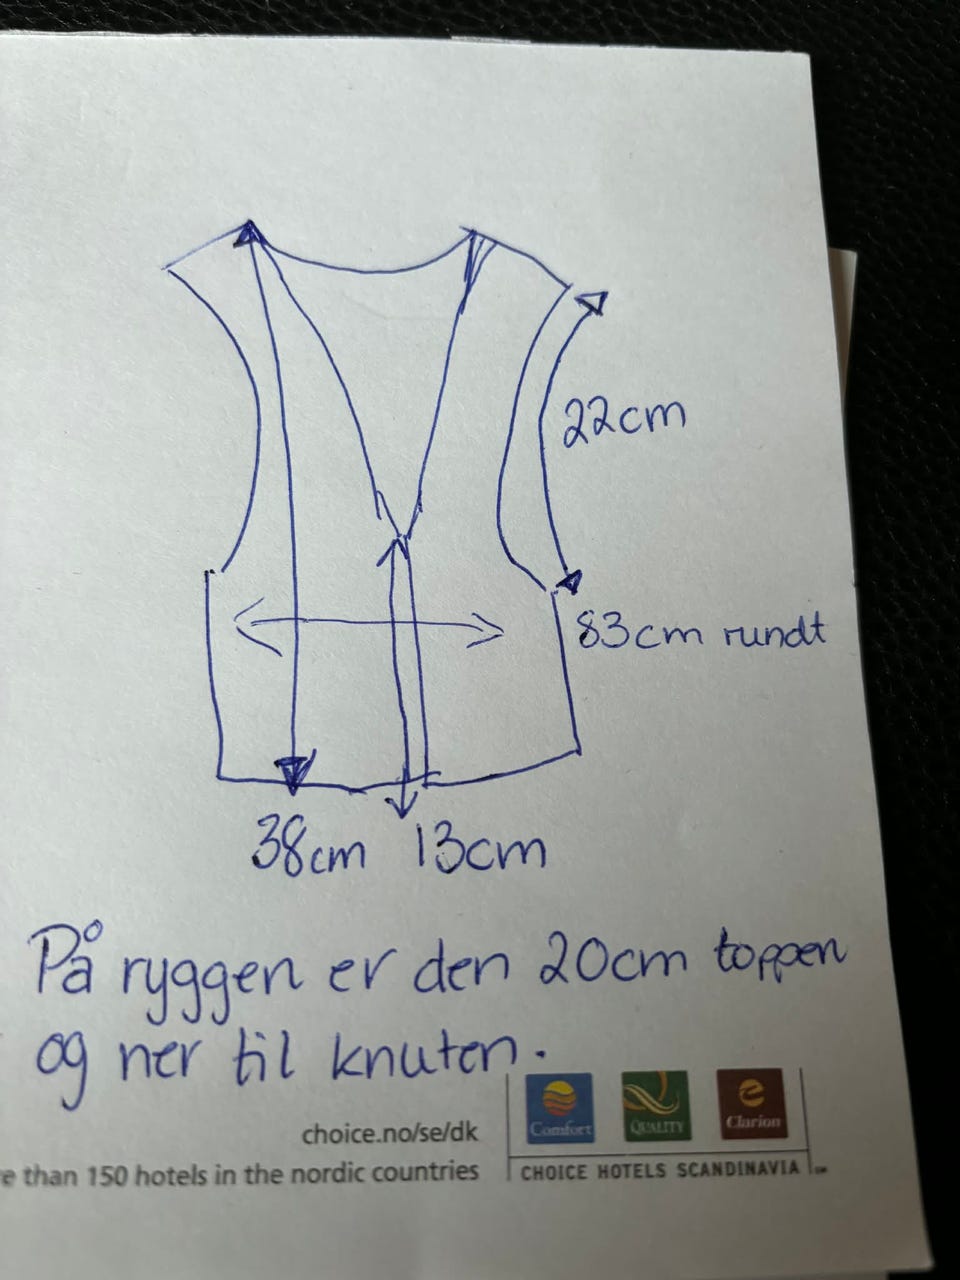 22cm
83cm rundt
38cm 13cm
På ryggen er den 20cm toppen
og ner til knuten.
Comfort QUALITY Clarion
choice.no/se/dk
e than 150 hotels in the nordic countries
CHOICE HOTELS SCANDINAVIA